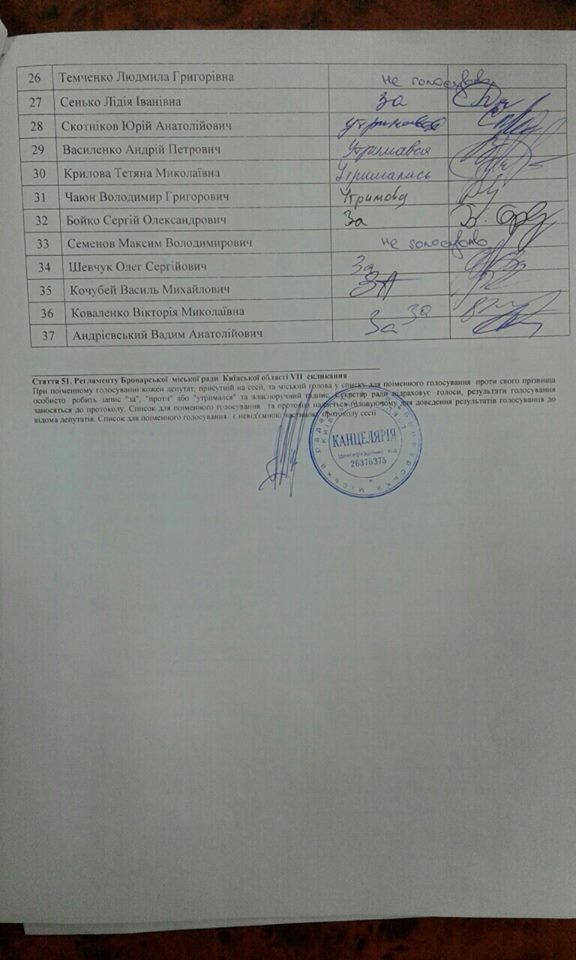 26 Темченко Людмила Григорівна не голосувала
27 Сенько Лідія Іванівна За
28 Скотніков Юрій Анатолійович утримався
29 Василенко Андрій Петрович Утримався
30 Крилова Тетяна Миколаївна Утрималась
31 Чаюн Володимир Григорович
32 Бойко Сергій Олександрович За
33 Семенов Максим Володимирович не голосував
34 Шевчук Олег Сергійович За
35 Кочубей Василь Михайлович ЗА
36 Коваленко Вікторія Миколаївна За
37 Андрієвський Вадим Анатолійович За
Стаття 51. Регламенту Броварської міської ради Київської області VII скликання
При поіменному голосуванні кожен депутат, присутній на сесії, та міський голова у списку для поіменного голосування проти свого прізвища
особисто робить запис "за", "проти" або "утримався" та власноручний підпис. Секретар ради підраховує голоси, результати голосування
заносяться до протоколу. Список для поіменного голосування та протокол надається головуючому для доведення результатів голосування до
відома депутатів. Список для поіменного голосування є невід'ємною частиною протоколу сесії
КАНЦЕЛЯРІЯ
Ідентифікаційний код
26376375